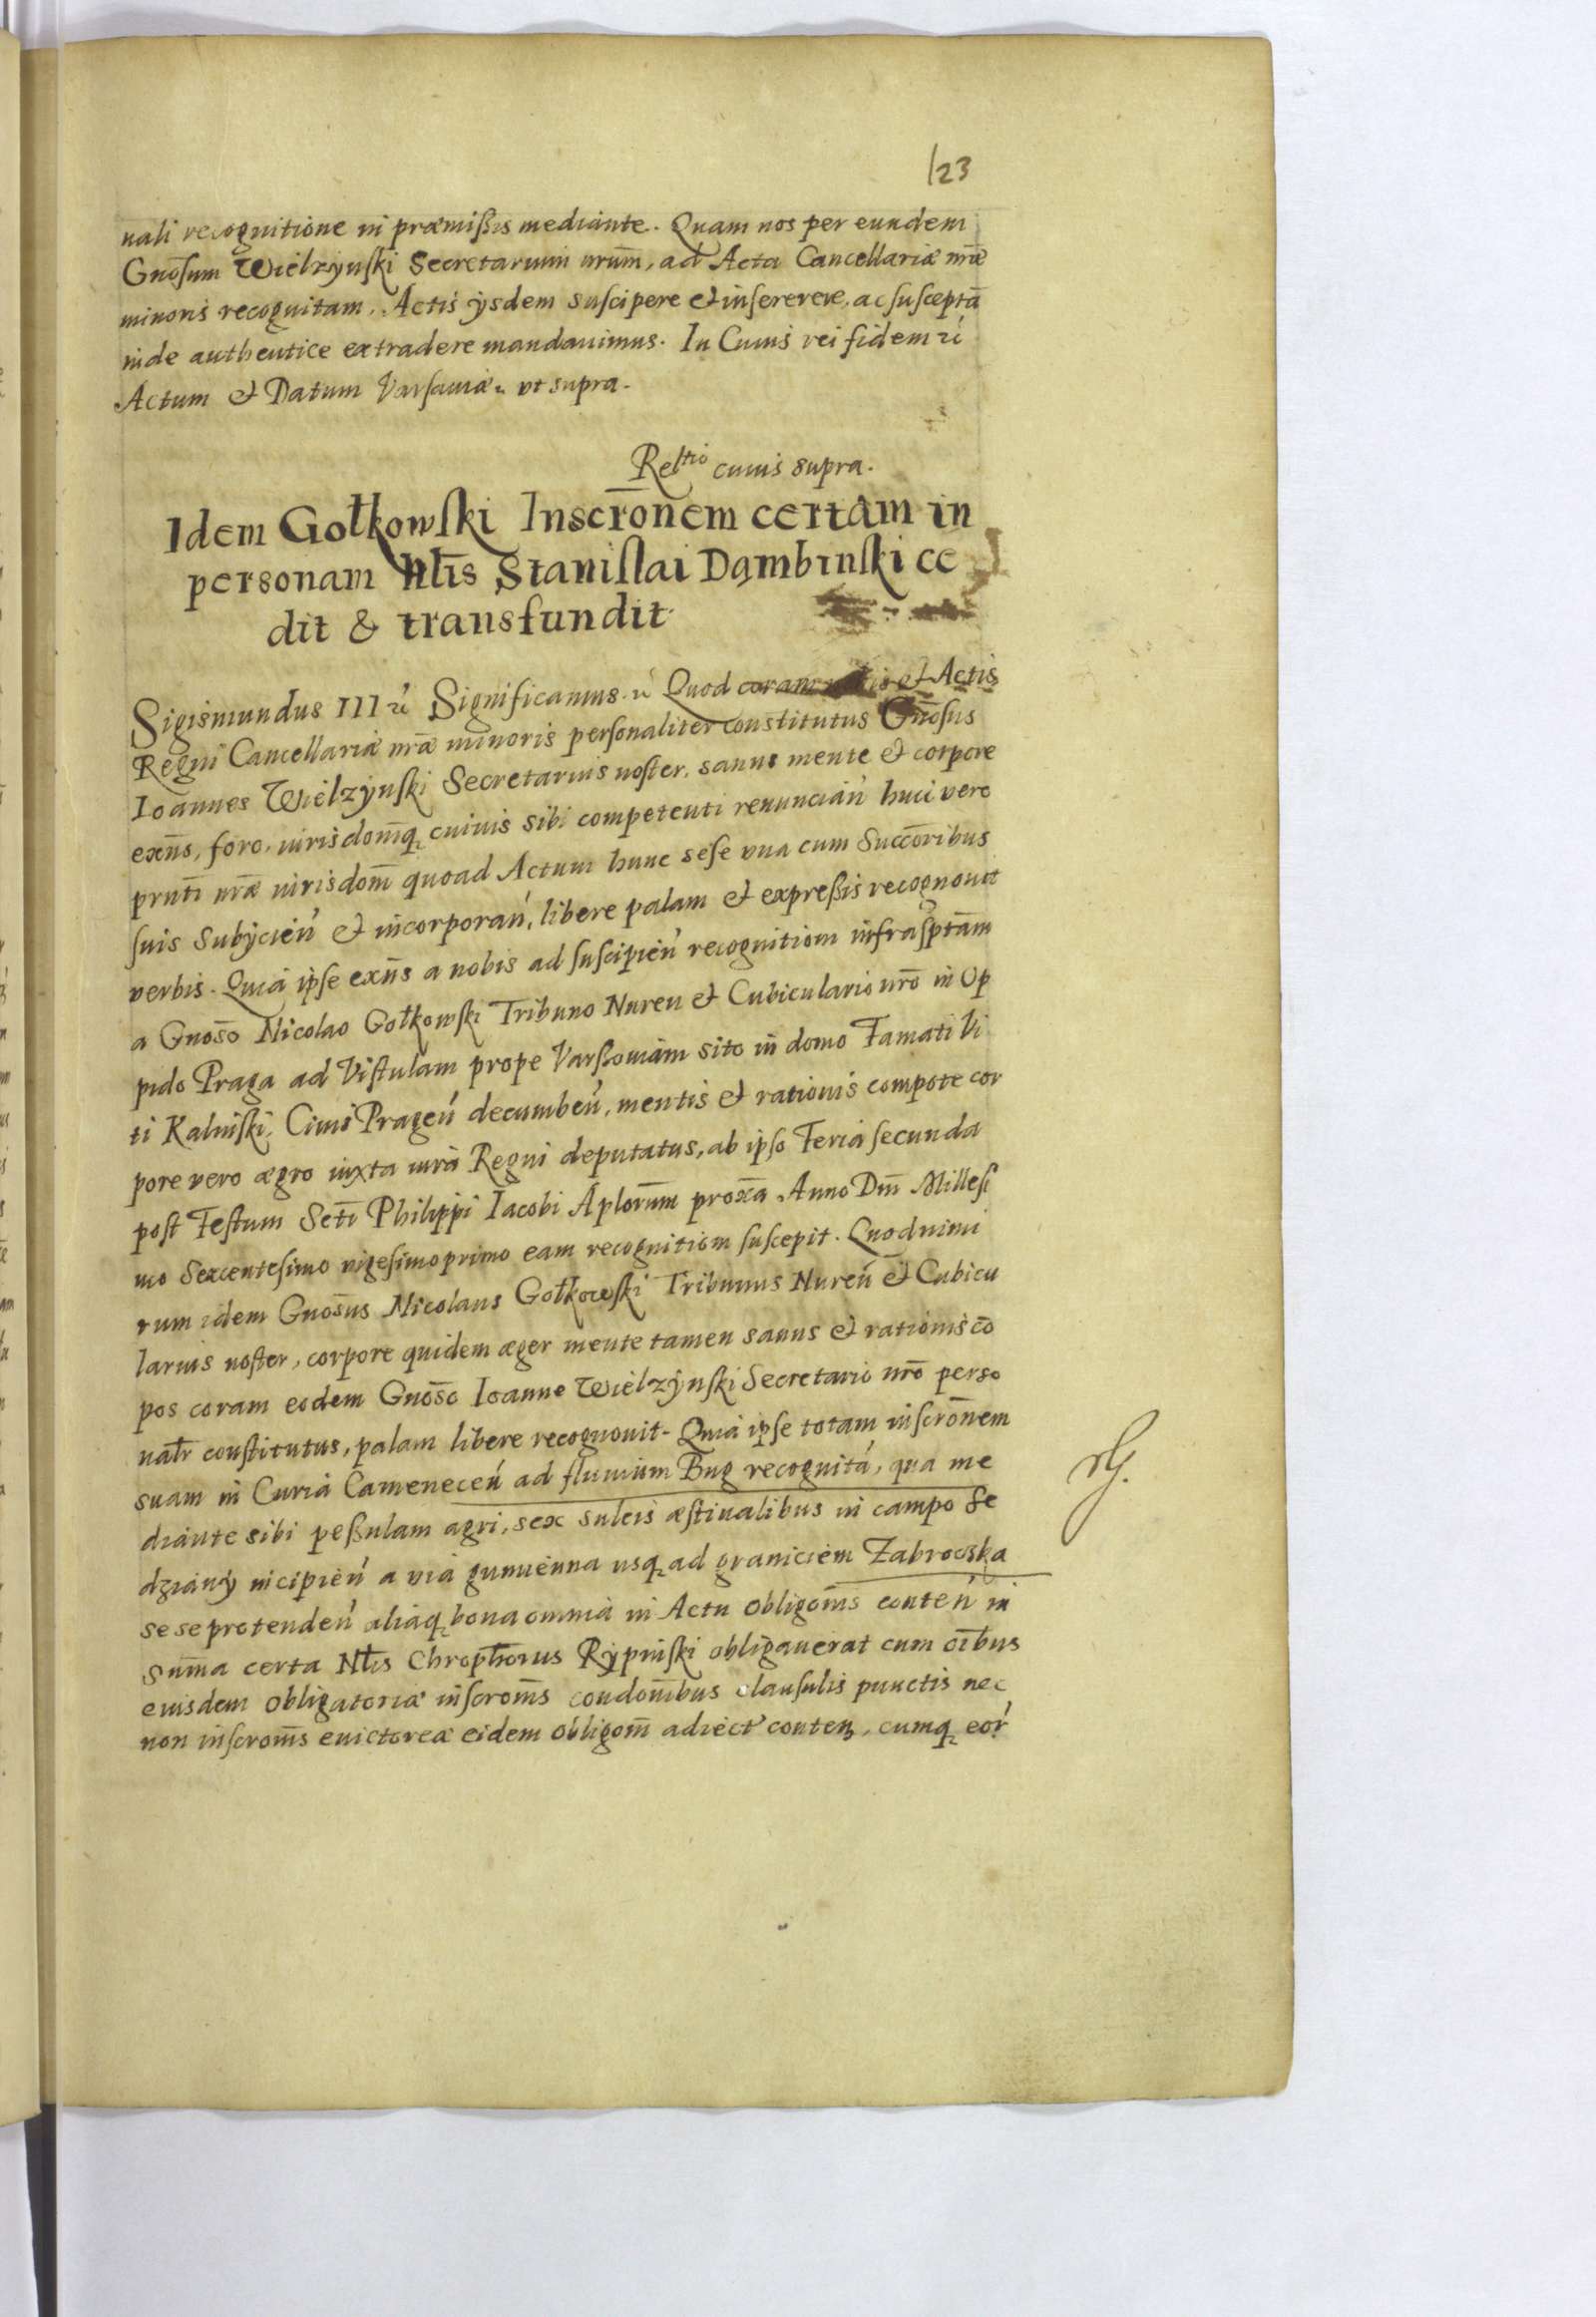 123
nali recognitione in præmißis mediante. Quam nos per eundem
Gnōsum Wielzÿnski Secretarium nrūm, ad Acta Cancellariæ nrǣ
minoris recognitam. Actis ÿsdem suscipere et inserere, ac susceptā
inde authentice extradere mandauimus. In Cuius rei fidem
Actum et Datum Varsauiæ ut supra.
Reltio cuius supra.
Idem Gołkowski Inscrōnem certam in
personam Nłis Stanislai Dąmbinski ce
dit & transfundit
Sigismundus III Significamus Quod coram et Actis
Regni Cancellariæ nrǣ minoris personaliter constitutus Gnōsus
Ioannes Wielzÿnski Secretarius noster, sanus mente et corpore
exns̄, foro, iurisdom̄q cuiuis sibi competenti renuncian̄ huic vero
prnti nrǣ iurisdom̄ quoad Actum hunc sese vna cum Succōribus
suis Subÿcien̄ et incorporan̄, libere palam et expreßis recognouit
verbis. Quia ipse exns̄ a nobis ad suscipien̄ recognitiom infrasptām
a Gnōso Nicolao Gołkowski Tribuno Nuren et Cubiculario nrō in Op
pido Praga ad Vistulam prope Varssouiam sito in domo Famati Vi
ti Kalinski, Ciuis Pragen̄ decumben̄, mentis et rationis compote cor
pore vero ægro iuxta iura Regni deputatus, ab ipso Feria secunda
post Festum Scti Philippi Iacobi Aplorūm proxā Anno Dm̄ Millesi
mo Sexcentesimo vigesimoprimo eam recognitiom suscepit. Quod nimi
rum idem Gnosūs Nicolaus Gołkowski Tribunus Nuren̄ et Cubicu
larius noster, corpore quidem æger mente tamen sanus et rationis cō
pos coram eodem Gnōso Ioanne Wielzÿnski Secretario nrō perso
natr constitutus, palam libere recognouit. Quia ipse totam inscrōnem
suam in Curia Camenecen̄ ad fluuium Bug recognitā, qua me
diante sibi peßulam agri, sex sulcis æstiualibus in campo Se
dziany incipien̄ a via gumienna usq ad graniciem Zabrowska
sese protenden̄ aliaq bona omnia in Actu obligom̄s conten̄ in
Sum̄a certa Nłis Chrophorus Rÿpinski obligauerat cum oībus
eiusdem obligatoriæ inscrom̄s condom̄bus clausulis punctis nec
non inscrom̄s euictoreæ eidem obligom̄ adiect conten, cumq eor